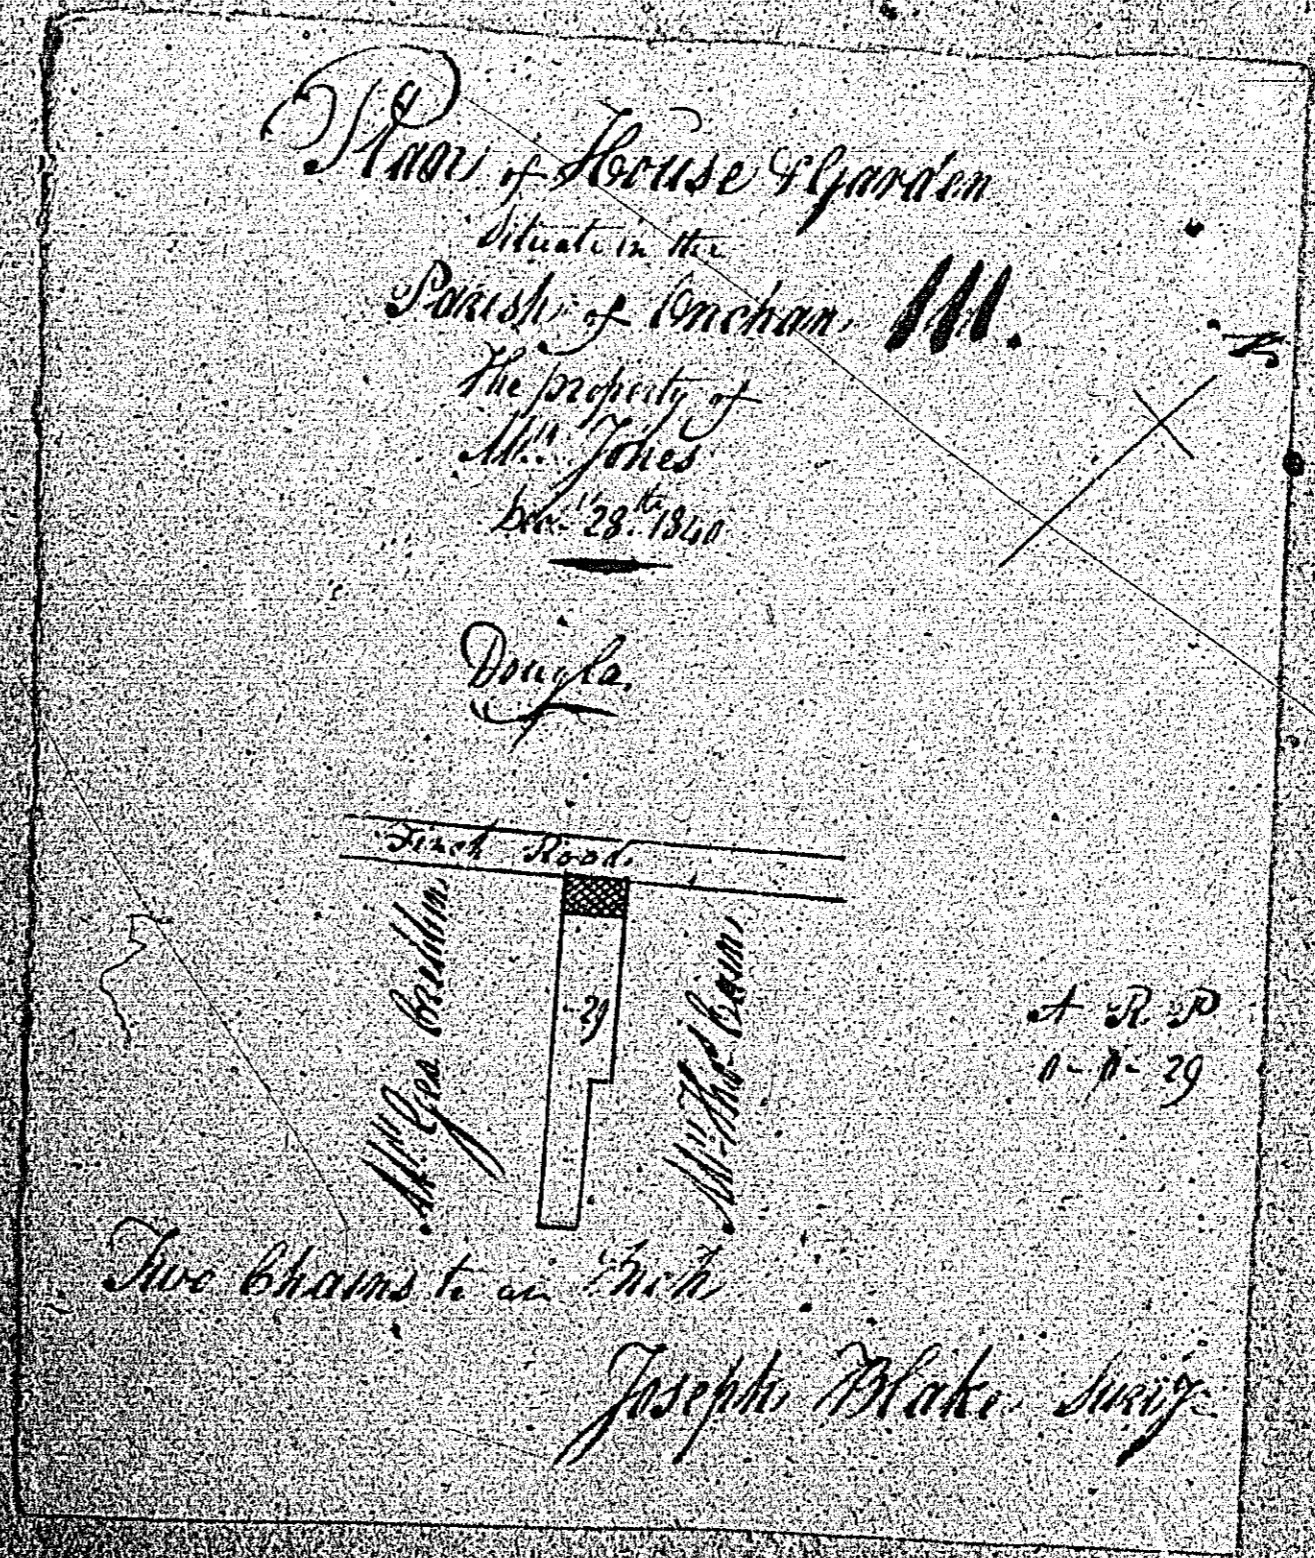 Plan of House & Garden
Situate in the
Parish of Onchan
The property of
Mrs. Jones
Decr. 28th. 1840
Douglas
Finch Road
Mr. Geo
29
Mr. Thos.
A R P
0 - 0 - 29
Two Chains to an Inch
Joseph Blake Survyr.